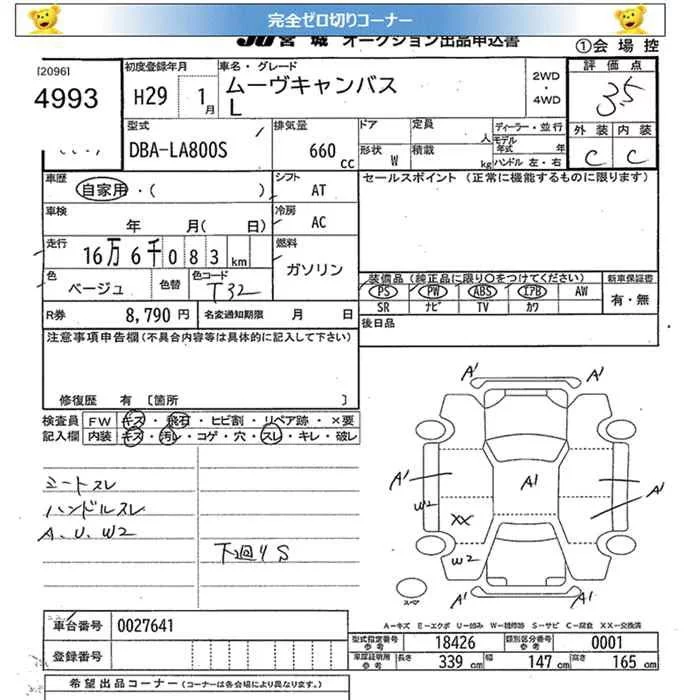 完全ゼロ切りコーナー
JU 宮城 オークション出品申込書
①会場控
[2096]
4993
初度登録年月
H29 1月
車名・グレード
ムーヴキャンバス
L
2WD
・
4WD
評価点
3.5
外装 内装
C C
型式
DBA-LA800S
排気量
660 cc
ドア
定員 人
ディーラー・並行
モデル年式 年
形状 W
積載 kg
ハンドル 左・右
車歴
自家用・( )
シフト
AT
セールスポイント (正常に機能するものに限ります)
車検
年 月( 日)
冷房
AC
走行
16万6千083km
燃料
ガソリン
色
ベージュ
色替
色コード
T32
装備品 (純正品に限り○をつけてください)
PS PW ABS エアB AW
SR ナビ TV カワ
新車保証書
有・無
R券
8,790円
名変通知期限 月 日
後日品
注意事項申告欄(不具合内容等は具体的に記入して下さい)
修復歴 有 [箇所 ]
検査員
記入欄
FW キズ・飛石・ヒビ割・リペア跡・×要
内装 キズ・汚レ・コゲ・穴・スレ・キレ・破レ
シートスレ
ハンドルスレ
A、U、W2
下廻りS
A' A'
A' A' A'
W2
XX
W2
A' A'
スペア
A−キズ E−エクボ U−凹み W−補修跡 S−サビ C−腐食 XX−交換済
車台番号 0027641
登録番号
型式指定番号 参考 18426
類別区分番号 参考 0001
車庫証明用 参考 長さ 339cm 幅 147cm 高さ 165cm
希望出品コーナー (コーナーは各会場により異なります。)